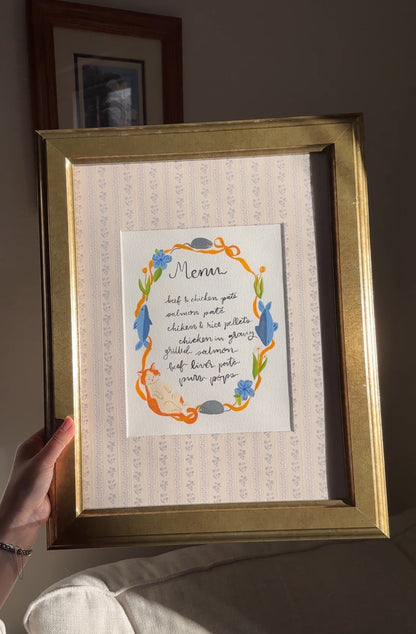 Menu
beef & chicken paté
salmon paté
chicken & rice pellets
chicken in gravy
grilled salmon
beef liver paté
purr pops